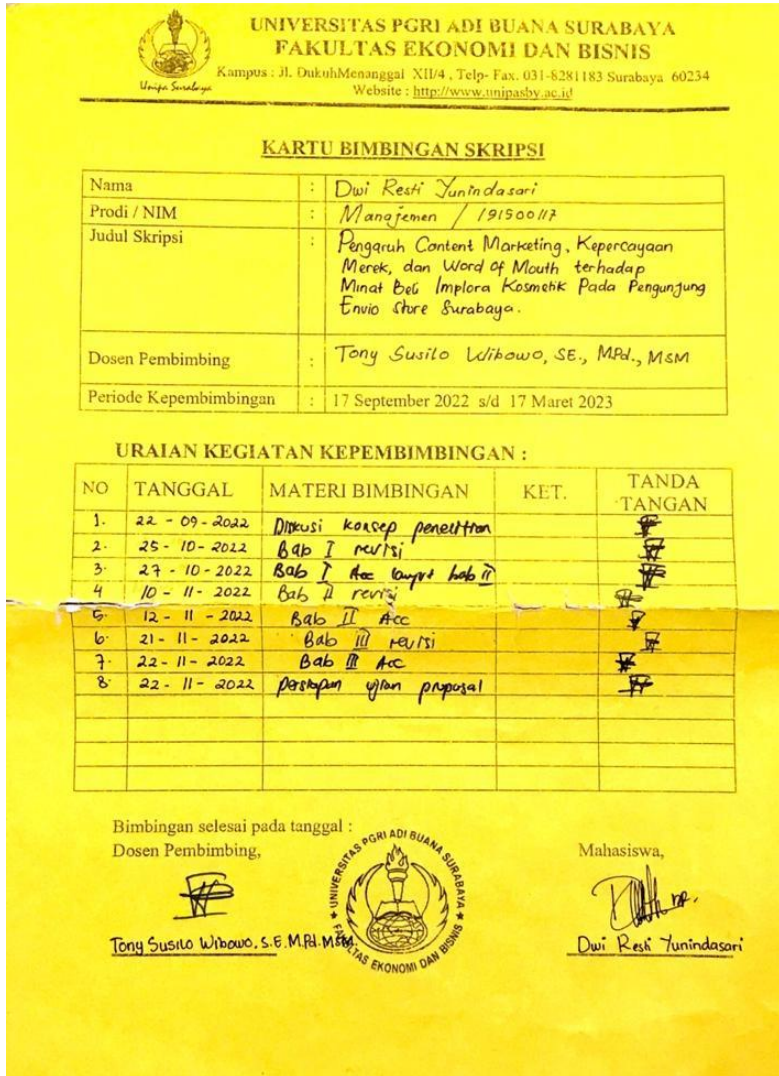 UNIVERSITAS PGRI ADI BUANA SURABAYA
FAKULTAS EKONOMI DAN BISNIS
Kampus : Jl. DukuhMenanggal XII/4 , Telp- Fax. 031-8281183 Surabaya 60234
Website : http://www.unipasby.ac.id
Unipa Surabaya
KARTU BIMBINGAN SKRIPSI
Nama : Dwi Resti Yunindasari
Prodi / NIM : Manajemen / 191500117
Judul Skripsi : Pengaruh Content Marketing, Kepercayaan
Merek, dan Word Of Mouth terhadap
Minat Beli Implora Kosmetik Pada Pengunjung
Envio Store Surabaya.
Dosen Pembimbing : Tony Susilo Wibowo, SE., MPd., MSM
Periode Kepembimbingan : 17 September 2022 s/d 17 Maret 2023
URAIAN KEGIATAN KEPEMBIMBINGAN :
NO TANGGAL MATERI BIMBINGAN KET. TANDA TANGAN
1. 22 - 09 - 2022 Diskusi konsep penelitian
2. 25 - 10 - 2022 Bab I revisi
3. 27 - 10 - 2022 Bab I Acc lanjut bab II
4 10 - 11 - 2022 Bab II revisi
5. 12 - 11 - 2022 Bab II Acc
6. 21 - 11 - 2022 Bab III revisi
7. 22 - 11 - 2022 Bab III Acc
8. 22 - 11 - 2022 persiapan ujian proposal
Bimbingan selesai pada tanggal :
Dosen Pembimbing, Mahasiswa,
UNIVERSITAS PGRI ADI BUANA SURABAYA
FAKULTAS EKONOMI DAN BISNIS
Tony Susilo Wibowo, S.E, M.Pd. MSM. Dwi Resti Yunindasari